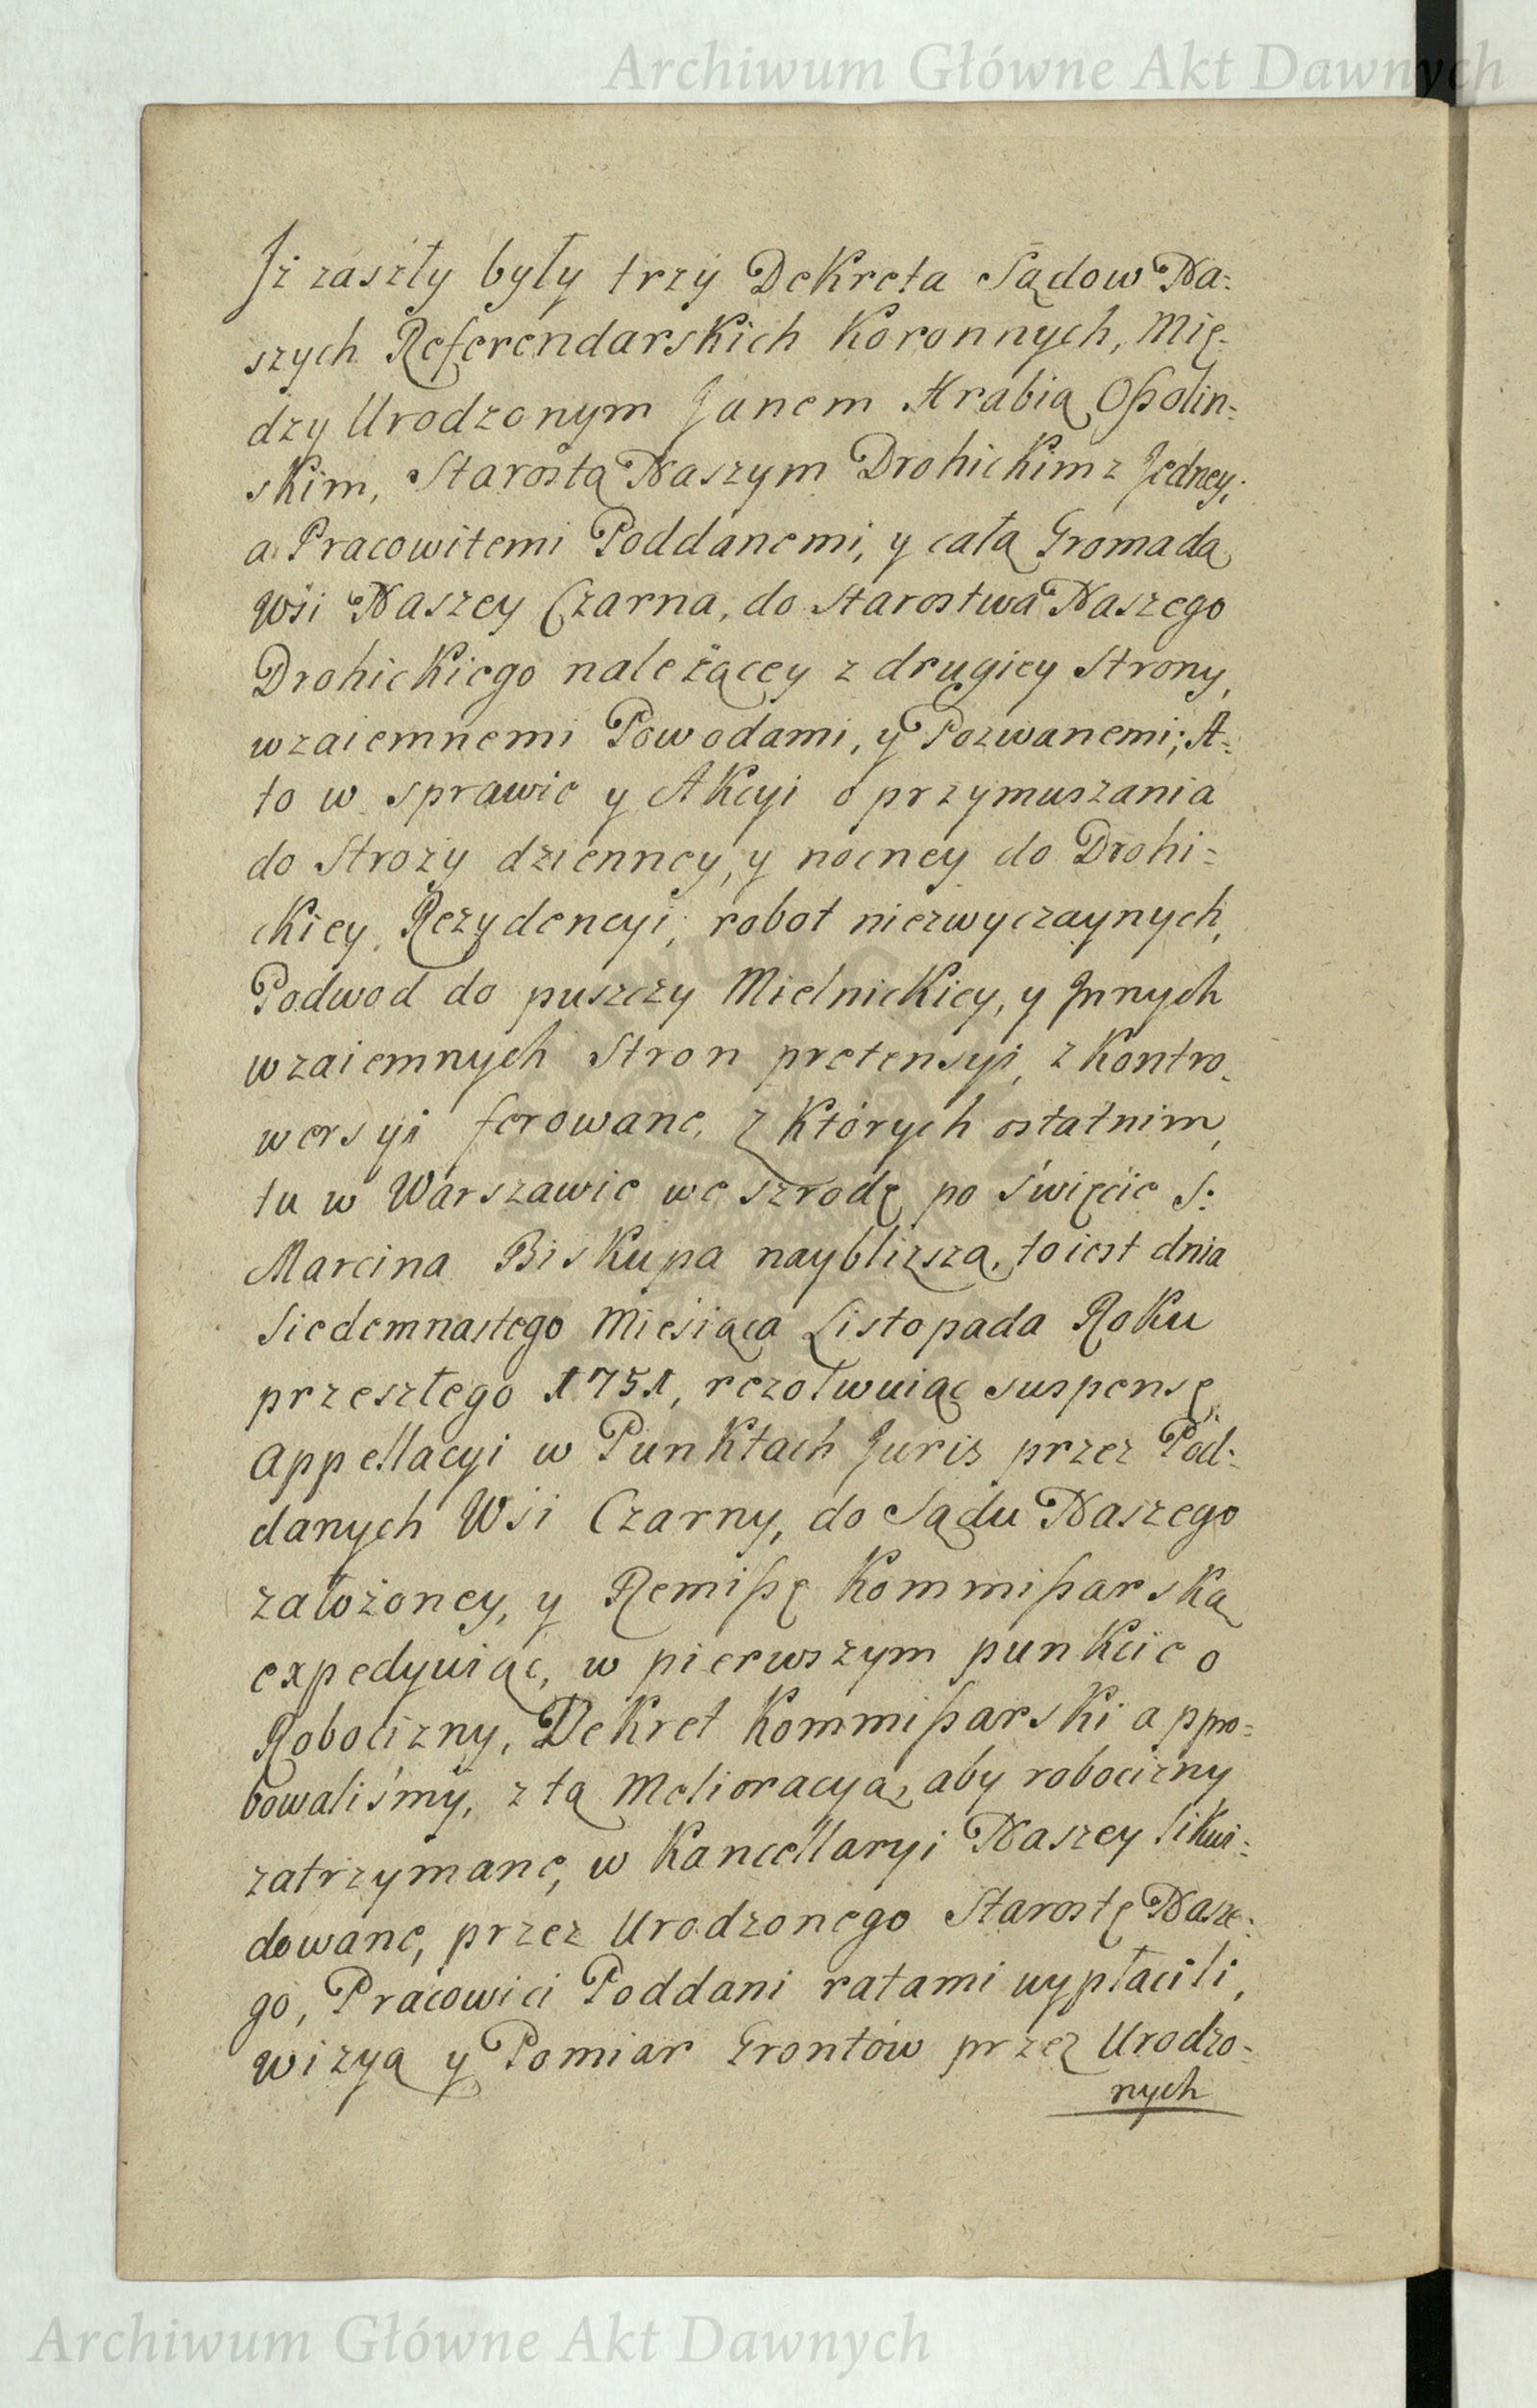 Archiwum Główne Akt Dawnych
Jż zaszły były trzy Dekreta Sądow Na:
szych Referendarskich Koronnych, Mię-
dzy Urodzonym Janem Hrabią Oßolin:
skim, Starostą Naszym Drohickim z Jedney,
a Pracowitemi Poddanemi, y całą Gromadą
Wsi Naszey Czarna, do Starostwa Naszego
Drohickiego należącey z drugiey Strony,
wzaiemnemi Powodami, y Pozwanemi; A:
to w sprawie y Akcyi o przymuszania
do Stroży dzienney, y nocney do Drohi=
ckiey Rezydencyi, robot niezwyczaynych,
Podwod do puszczy Mielnickiey, y Jnnych
wzaiemnych Stron pretensyi, z kontro-
wersyi ferowane, z których ostatnim,
tu w Warszawie we szrodę po święcie S:
Marcina Biskupa naybliższą, to iest dnia
Siedemnastego Miesiąca Listopada Roku
przeszłego 1751, rezolwuiąc suspensę
Appellacyi w Punktach Juris przez Pod:
danych Wsi Czarny, do Sądu Naszego
założoney, y Remißę Kommißarską
expedyuiąc, w pierwszym punkcie o
Robocizny, Dekret Kommißarski appro:
bowaliśmy, z tą Melioracyą, aby robocizny
zatrzymane, w Kancellaryi Naszey likwi:
dowane, przez Urodzonego Starostę Nasze:
go, Pracowici Poddani ratami wypłacili,
wizyą y Pomiar Grontów przez Urodzo-
nych
Archiwum Główne Akt Dawnych